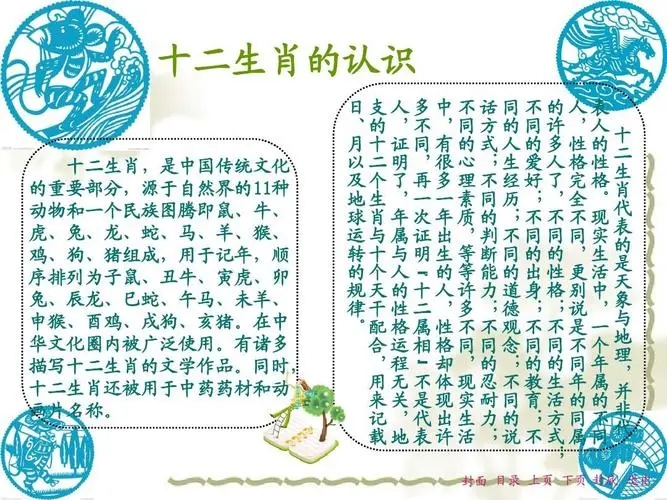 十二生肖的认识
十二生肖，是中国传统文化
的重要部分，源于自然界的11种
动物和一个民族图腾即鼠、牛、
虎、兔、龙、蛇、马、羊、猴、
鸡、狗、猪组成，用于记年，顺
序排列为子鼠、丑牛、寅虎、卯
兔、辰龙、巳蛇、午马、未羊、
申猴、酉鸡、戌狗、亥猪。在中
华文化圈内被广泛使用。有诸多
描写十二生肖的文学作品。同时
十二生肖还被用于中药药材和动
画片名称。
十二生肖代表的是天象与地理，并非代
表人的性格。现实生活中，一个年属的不同
人，性格完全不同，更别说是不同年的同属
的许多人了，不同的性格；不同的生活方式；
不同的爱好；不同的出身；不同的教育；不
同的人生经历；不同的道德观念；不同的说
话方式；不同的判断能力；不同的忍耐力；
不同的心理素质，等等许多不同，现实生活
中，有很多一年出生的人，性格却体现出许
多不同，再一次证明『十二属相』不是代表
人，证明了，年属与人的性格运程无关，地
支的十二个生肖与十个天干配合，用来记载
日、月以及地球运转的规律。
封面 目录 上页 下页